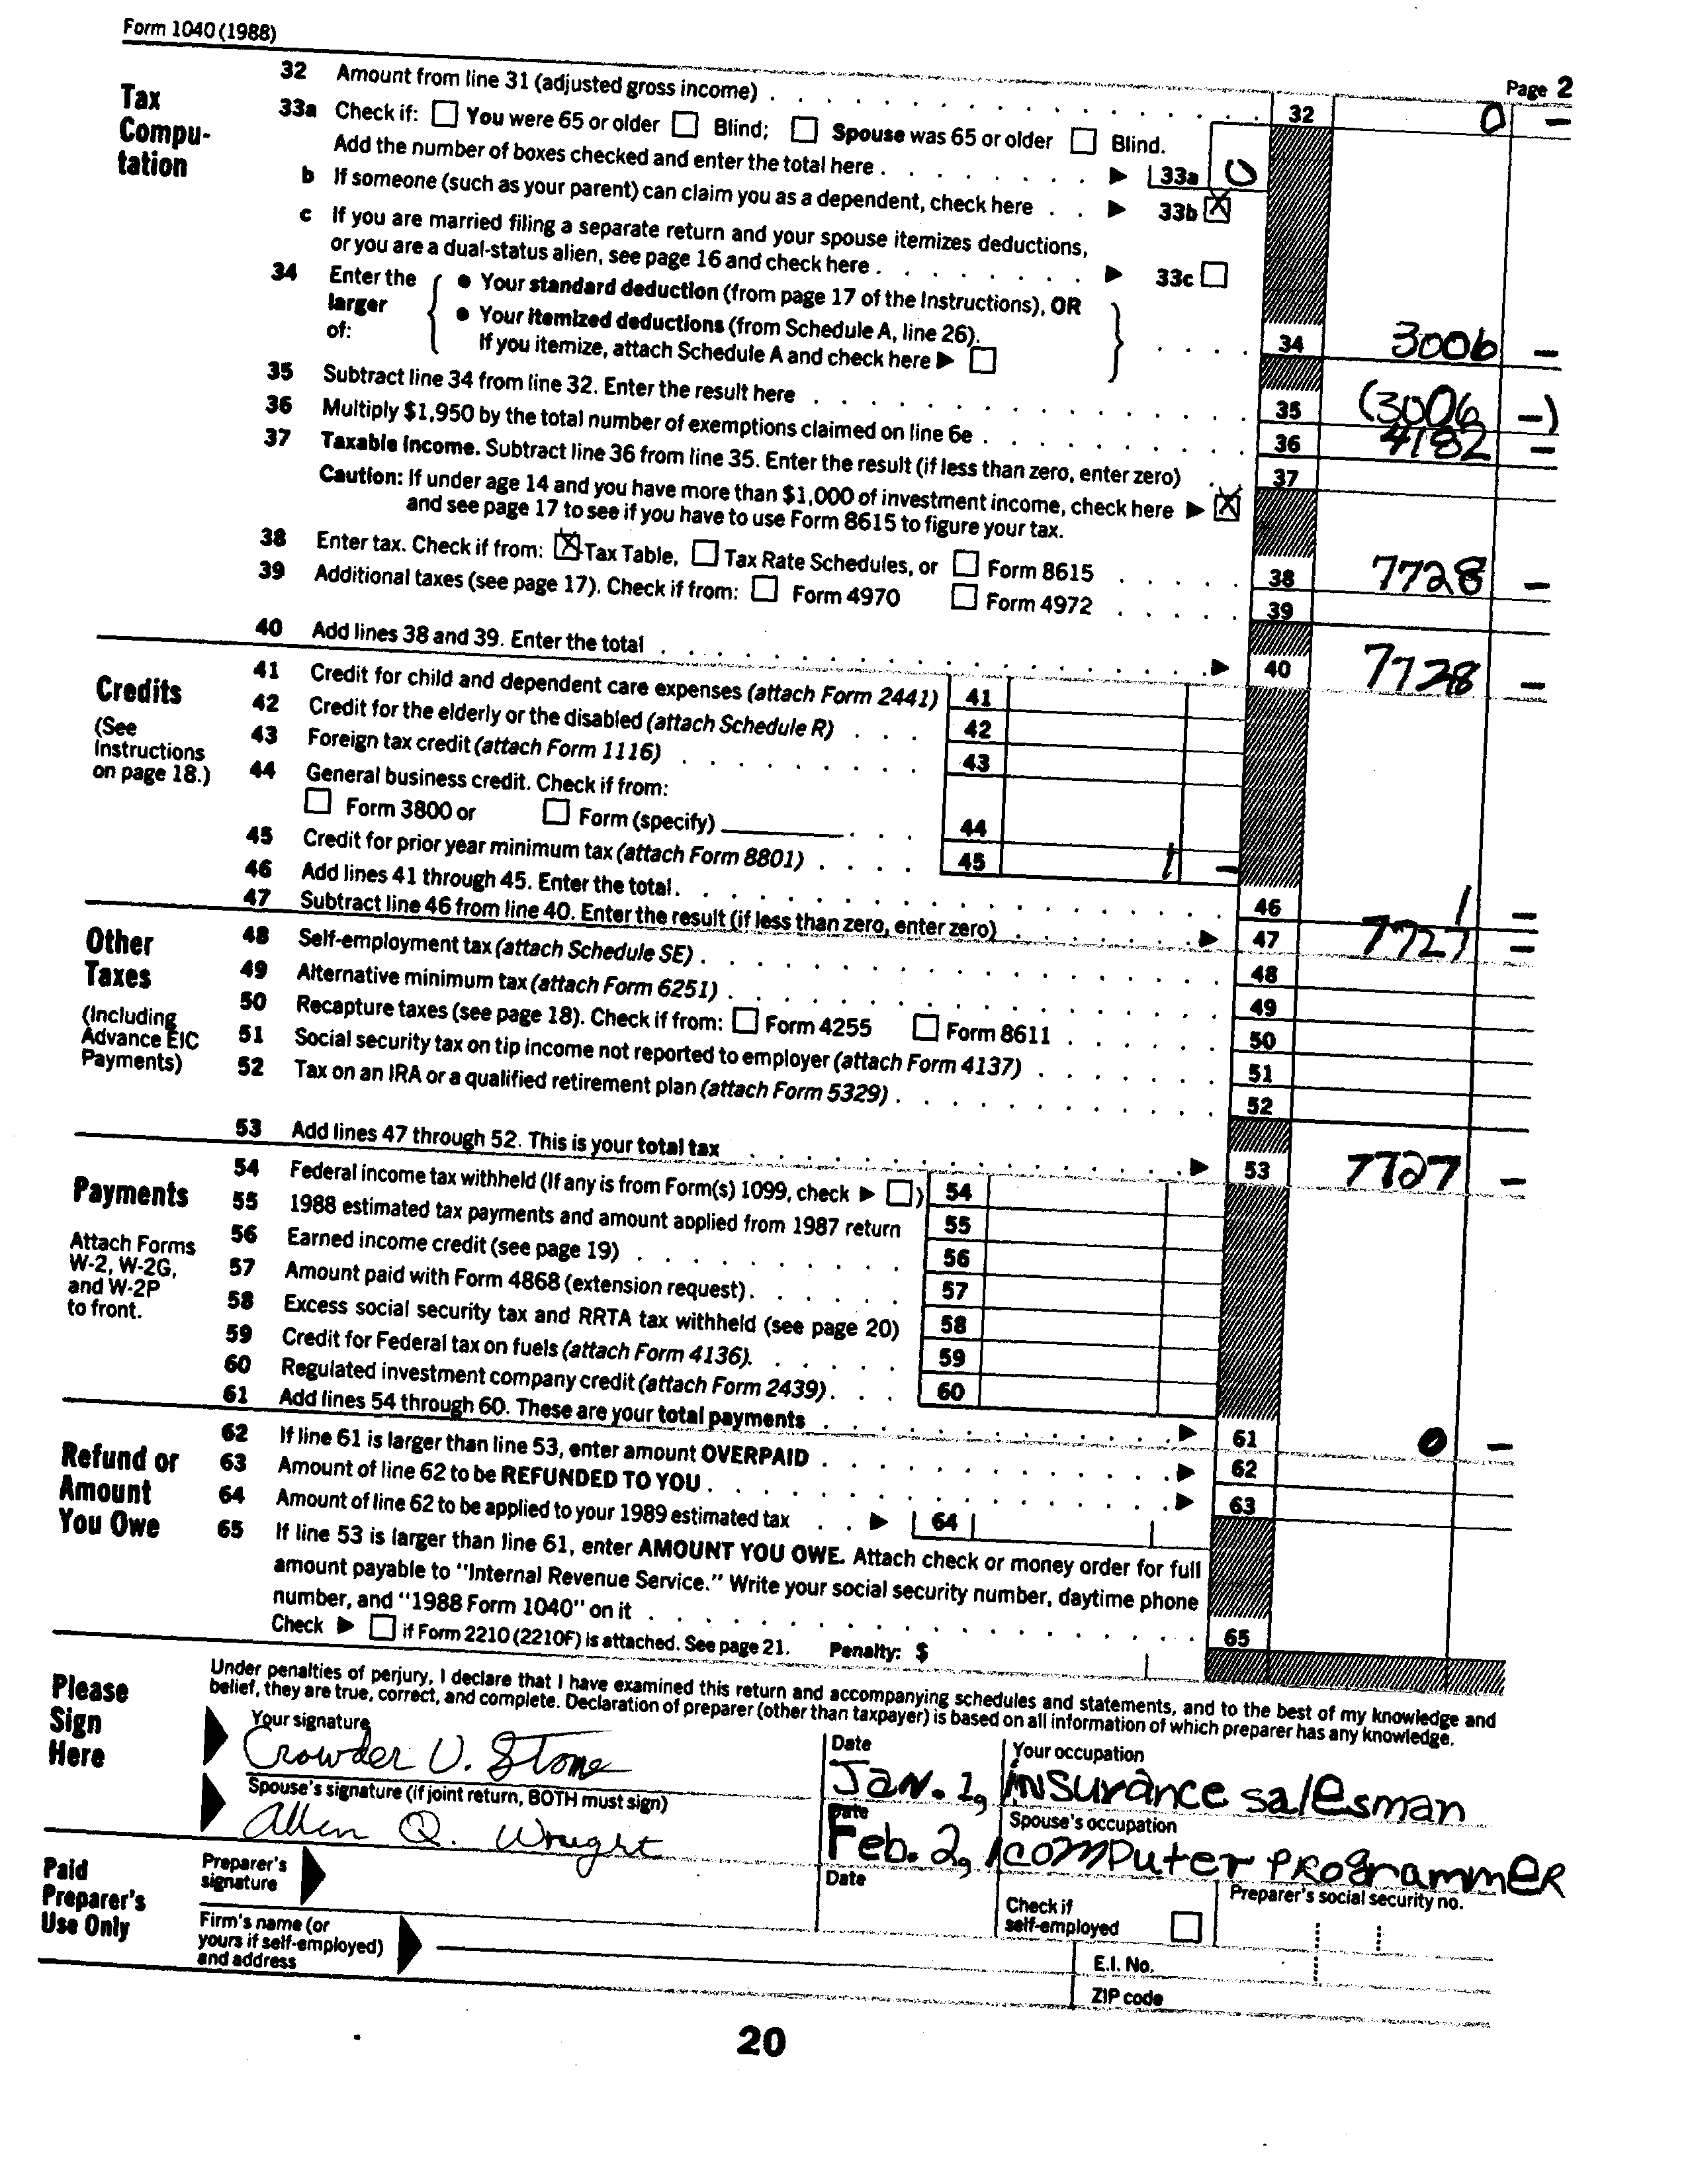 Form 1040 (1988)
Page 2
Tax Compu-tation
32 Amount from line 31 (adjusted gross income) . . . 32 0 –
33a Check if: ☐ You were 65 or older ☐ Blind; ☐ Spouse was 65 or older ☐ Blind.
Add the number of boxes checked and enter the total here . . . ▶ 33a 0
b If someone (such as your parent) can claim you as a dependent, check here . . ▶ 33b ☒
c If you are married filing a separate return and your spouse itemizes deductions,
or you are a dual-status alien, see page 16 and check here . . . ▶ 33c ☐
34 Enter the larger of: { ● Your standard deduction (from page 17 of the Instructions), OR
● Your itemized deductions (from Schedule A, line 26).
If you itemize, attach Schedule A and check here ▶ ☐ } . . . 34 3006 –
35 Subtract line 34 from line 32. Enter the result here . . . 35 (3006 –)
36 Multiply $1,950 by the total number of exemptions claimed on line 6e . . . 36 4182 –
37 Taxable income. Subtract line 36 from line 35. Enter the result (if less than zero, enter zero) . . 37
Caution: If under age 14 and you have more than $1,000 of investment income, check here ▶ ☒
and see page 17 to see if you have to use Form 8615 to figure your tax.
38 Enter tax. Check if from: ☒ Tax Table, ☐ Tax Rate Schedules, or ☐ Form 8615 . . . 38 7728 –
39 Additional taxes (see page 17). Check if from: ☐ Form 4970 ☐ Form 4972 . . . 39
40 Add lines 38 and 39. Enter the total . . . ▶ 40 7728 –
Credits
(See Instructions on page 18.)
41 Credit for child and dependent care expenses (attach Form 2441) 41
42 Credit for the elderly or the disabled (attach Schedule R) . . . 42
43 Foreign tax credit (attach Form 1116) . . . 43
44 General business credit. Check if from:
☐ Form 3800 or ☐ Form (specify) . . . 44
45 Credit for prior year minimum tax (attach Form 8801) . . . 45 1 –
46 Add lines 41 through 45. Enter the total . . . 46 1 –
47 Subtract line 46 from line 40. Enter the result (if less than zero, enter zero) . . . ▶ 47 7727 –
Other Taxes
(Including Advance EIC Payments)
48 Self-employment tax (attach Schedule SE) . . . 48
49 Alternative minimum tax (attach Form 6251) . . . 49
50 Recapture taxes (see page 18). Check if from: ☐ Form 4255 ☐ Form 8611 . . . 50
51 Social security tax on tip income not reported to employer (attach Form 4137) . . . 51
52 Tax on an IRA or a qualified retirement plan (attach Form 5329) . . . 52
53 Add lines 47 through 52. This is your total tax . . . ▶ 53 7727 –
Payments
Attach Forms W-2, W-2G, and W-2P to front.
54 Federal income tax withheld (If any is from Form(s) 1099, check ▶ ☐) 54
55 1988 estimated tax payments and amount applied from 1987 return 55
56 Earned income credit (see page 19) . . . 56
57 Amount paid with Form 4868 (extension request) . . . 57
58 Excess social security tax and RRTA tax withheld (see page 20) 58
59 Credit for Federal tax on fuels (attach Form 4136). . . . 59
60 Regulated investment company credit (attach Form 2439) . . . 60
61 Add lines 54 through 60. These are your total payments . . . ▶ 61 0 –
Refund or Amount You Owe
62 If line 61 is larger than line 53, enter amount OVERPAID . . . ▶ 62
63 Amount of line 62 to be REFUNDED TO YOU . . . ▶ 63
64 Amount of line 62 to be applied to your 1989 estimated tax . . ▶ 64
65 If line 53 is larger than line 61, enter AMOUNT YOU OWE. Attach check or money order for full
amount payable to "Internal Revenue Service." Write your social security number, daytime phone
number, and "1988 Form 1040" on it . . . 65
Check ▶ ☐ if Form 2210 (2210F) is attached. See page 21. Penalty: $
Please Sign Here
Under penalties of perjury, I declare that I have examined this return and accompanying schedules and statements, and to the best of my knowledge and
belief, they are true, correct, and complete. Declaration of preparer (other than taxpayer) is based on all information of which preparer has any knowledge.
Your signature Date Your occupation
Crowder U. Stone Jan. 1, insurance salesman
Spouse's signature (if joint return, BOTH must sign) Date Spouse's occupation
Allen Q. Wright Feb. 2, 1 computer programmer
Paid Preparer's Use Only
Preparer's signature Date Check if self-employed ☐ Preparer's social security no.
Firm's name (or yours if self-employed) and address
E.I. No.
ZIP code
20